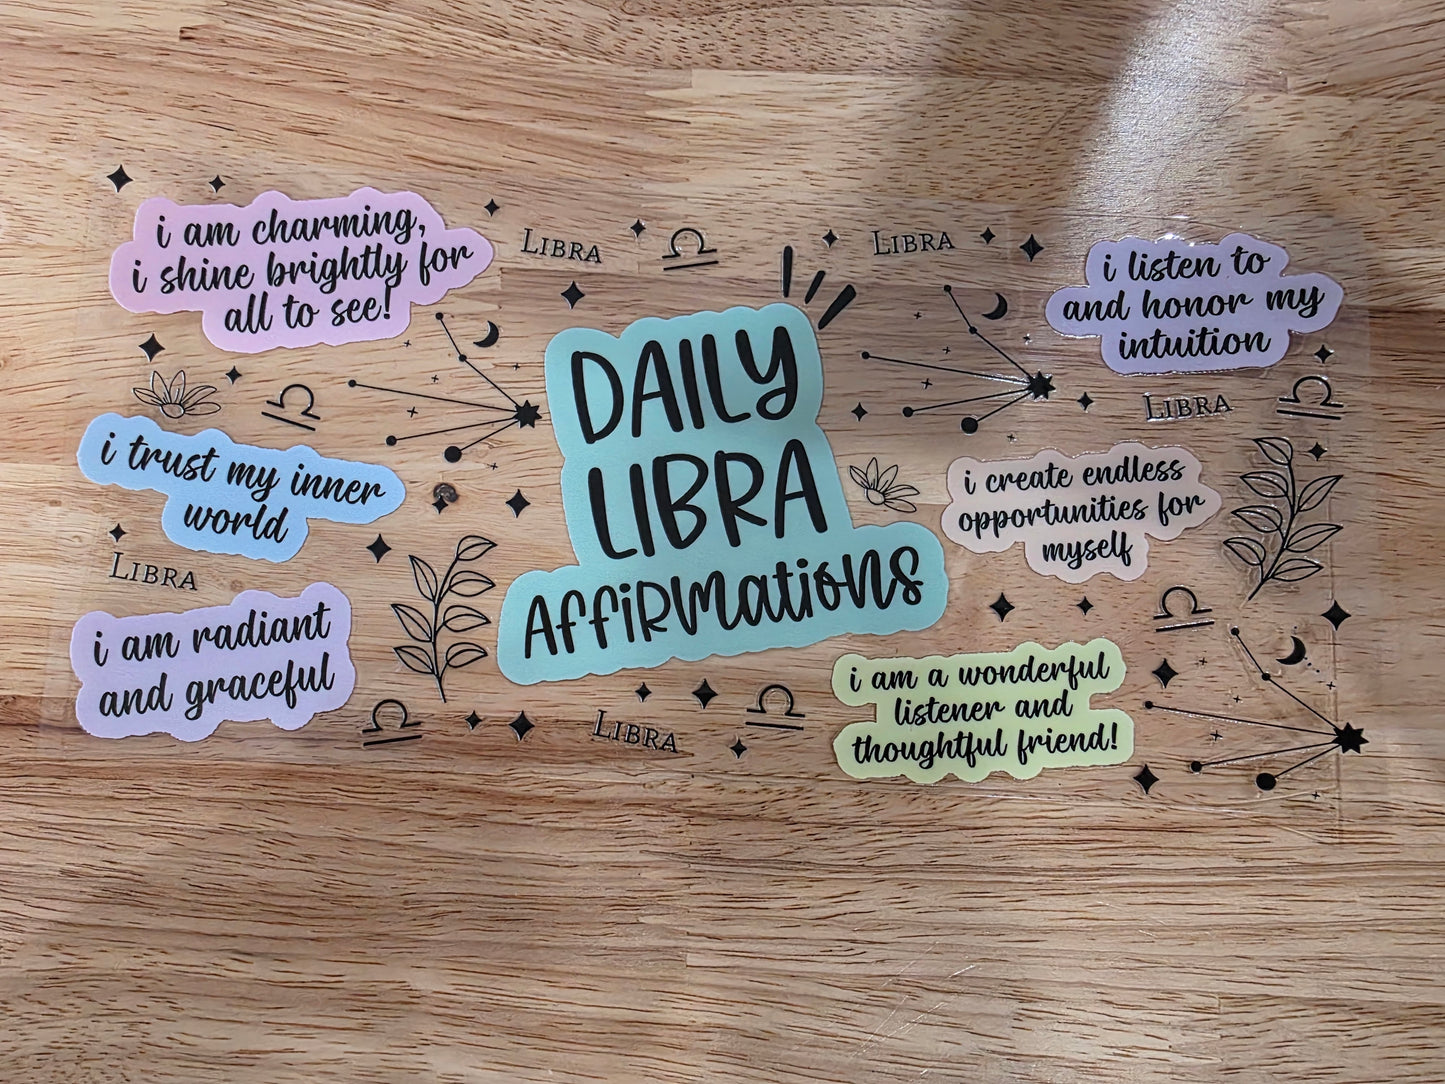 i am charming,
i shine brightly for
all to see!
LIBRA
LIBRA
i listen to
and honor my
intuition
LIBRA
DAILY
LIBRA
AffiRmations
i trust my inner
world
LIBRA
i create endless
opportunities for
myself
i am radiant
and graceful
LIBRA
i am a wonderful
listener and
thoughtful friend!